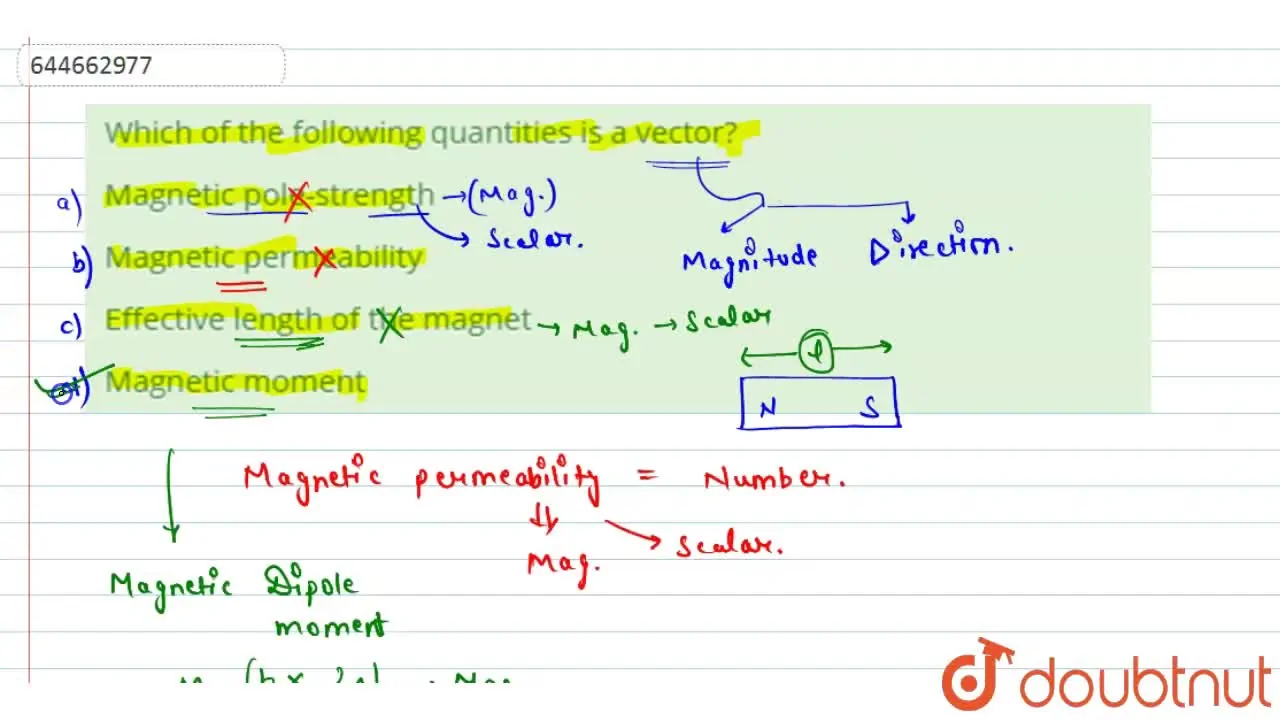 644662977
Which of the following quantities is a vector?
a) Magnetic pole-strength → (Mag.)
→ Scalar.
Magnitude Direction.
b) Magnetic permeability
c) Effective length of the magnet → Mag. → Scalar
l
d) Magnetic moment
N S
Magnetic permeability = Number.
Mag. Scalar.
Magnetic Dipole
moment
doubtnut